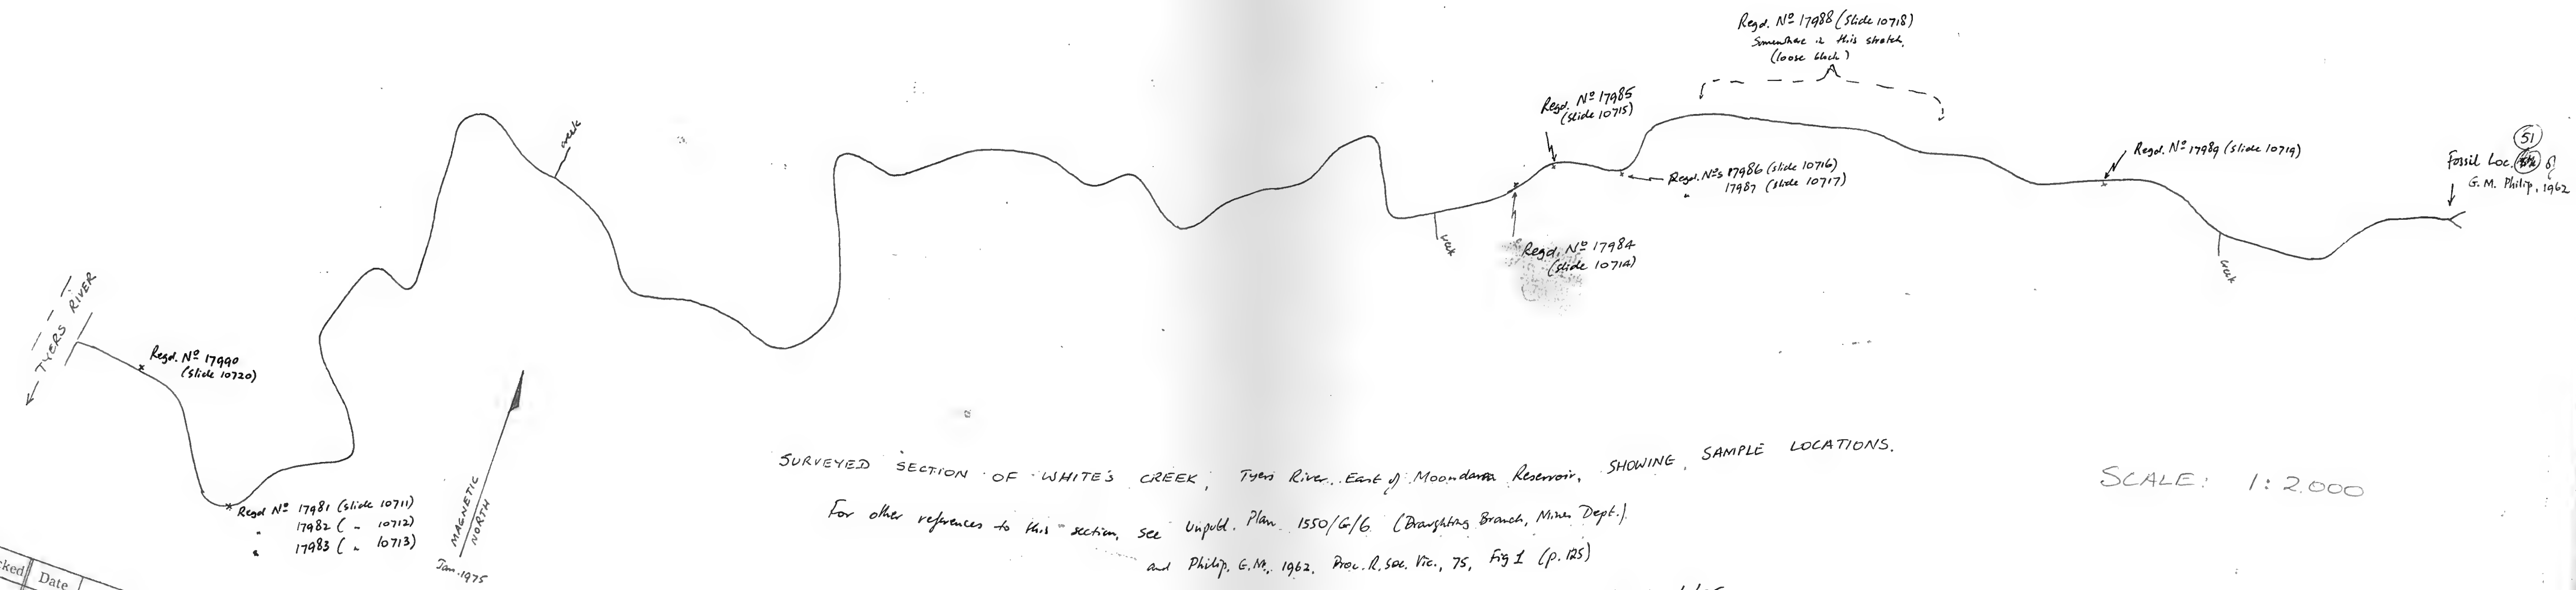 Regd. Nº 17988 (slide 10718)
Somewhere in this stretch.
(loose block)
Regd. Nº 17985
(slide 10715)
creek
Regd. Nº 17989 (slide 10719)
51
Fossil Loc.
G. M. Philip, 1962
Regd. Nºs 17986 (slide 10716)
" 17987 (slide 10717)
creek
Regd. Nº 17984
(slide 10714)
creek
TYERS RIVER
Regd. Nº 17990
(slide 10720)
Regd Nº 17981 (slide 10711)
" 17982 ( " 10712)
" 17983 ( " 10713)
MAGNETIC
NORTH
Jan. 1975
SURVEYED SECTION OF WHITE'S CREEK, Tyers River, East of Moondarra Reservoir, SHOWING SAMPLE LOCATIONS.
For other references to this section, see Unpubl. Plan 1550/G/6 (Draughting Branch, Mines Dept.)
and Philip, G.M., 1962, Proc. R. Soc. Vic., 75, Fig 1 (p. 125)
SCALE: 1:2.000
cked Date